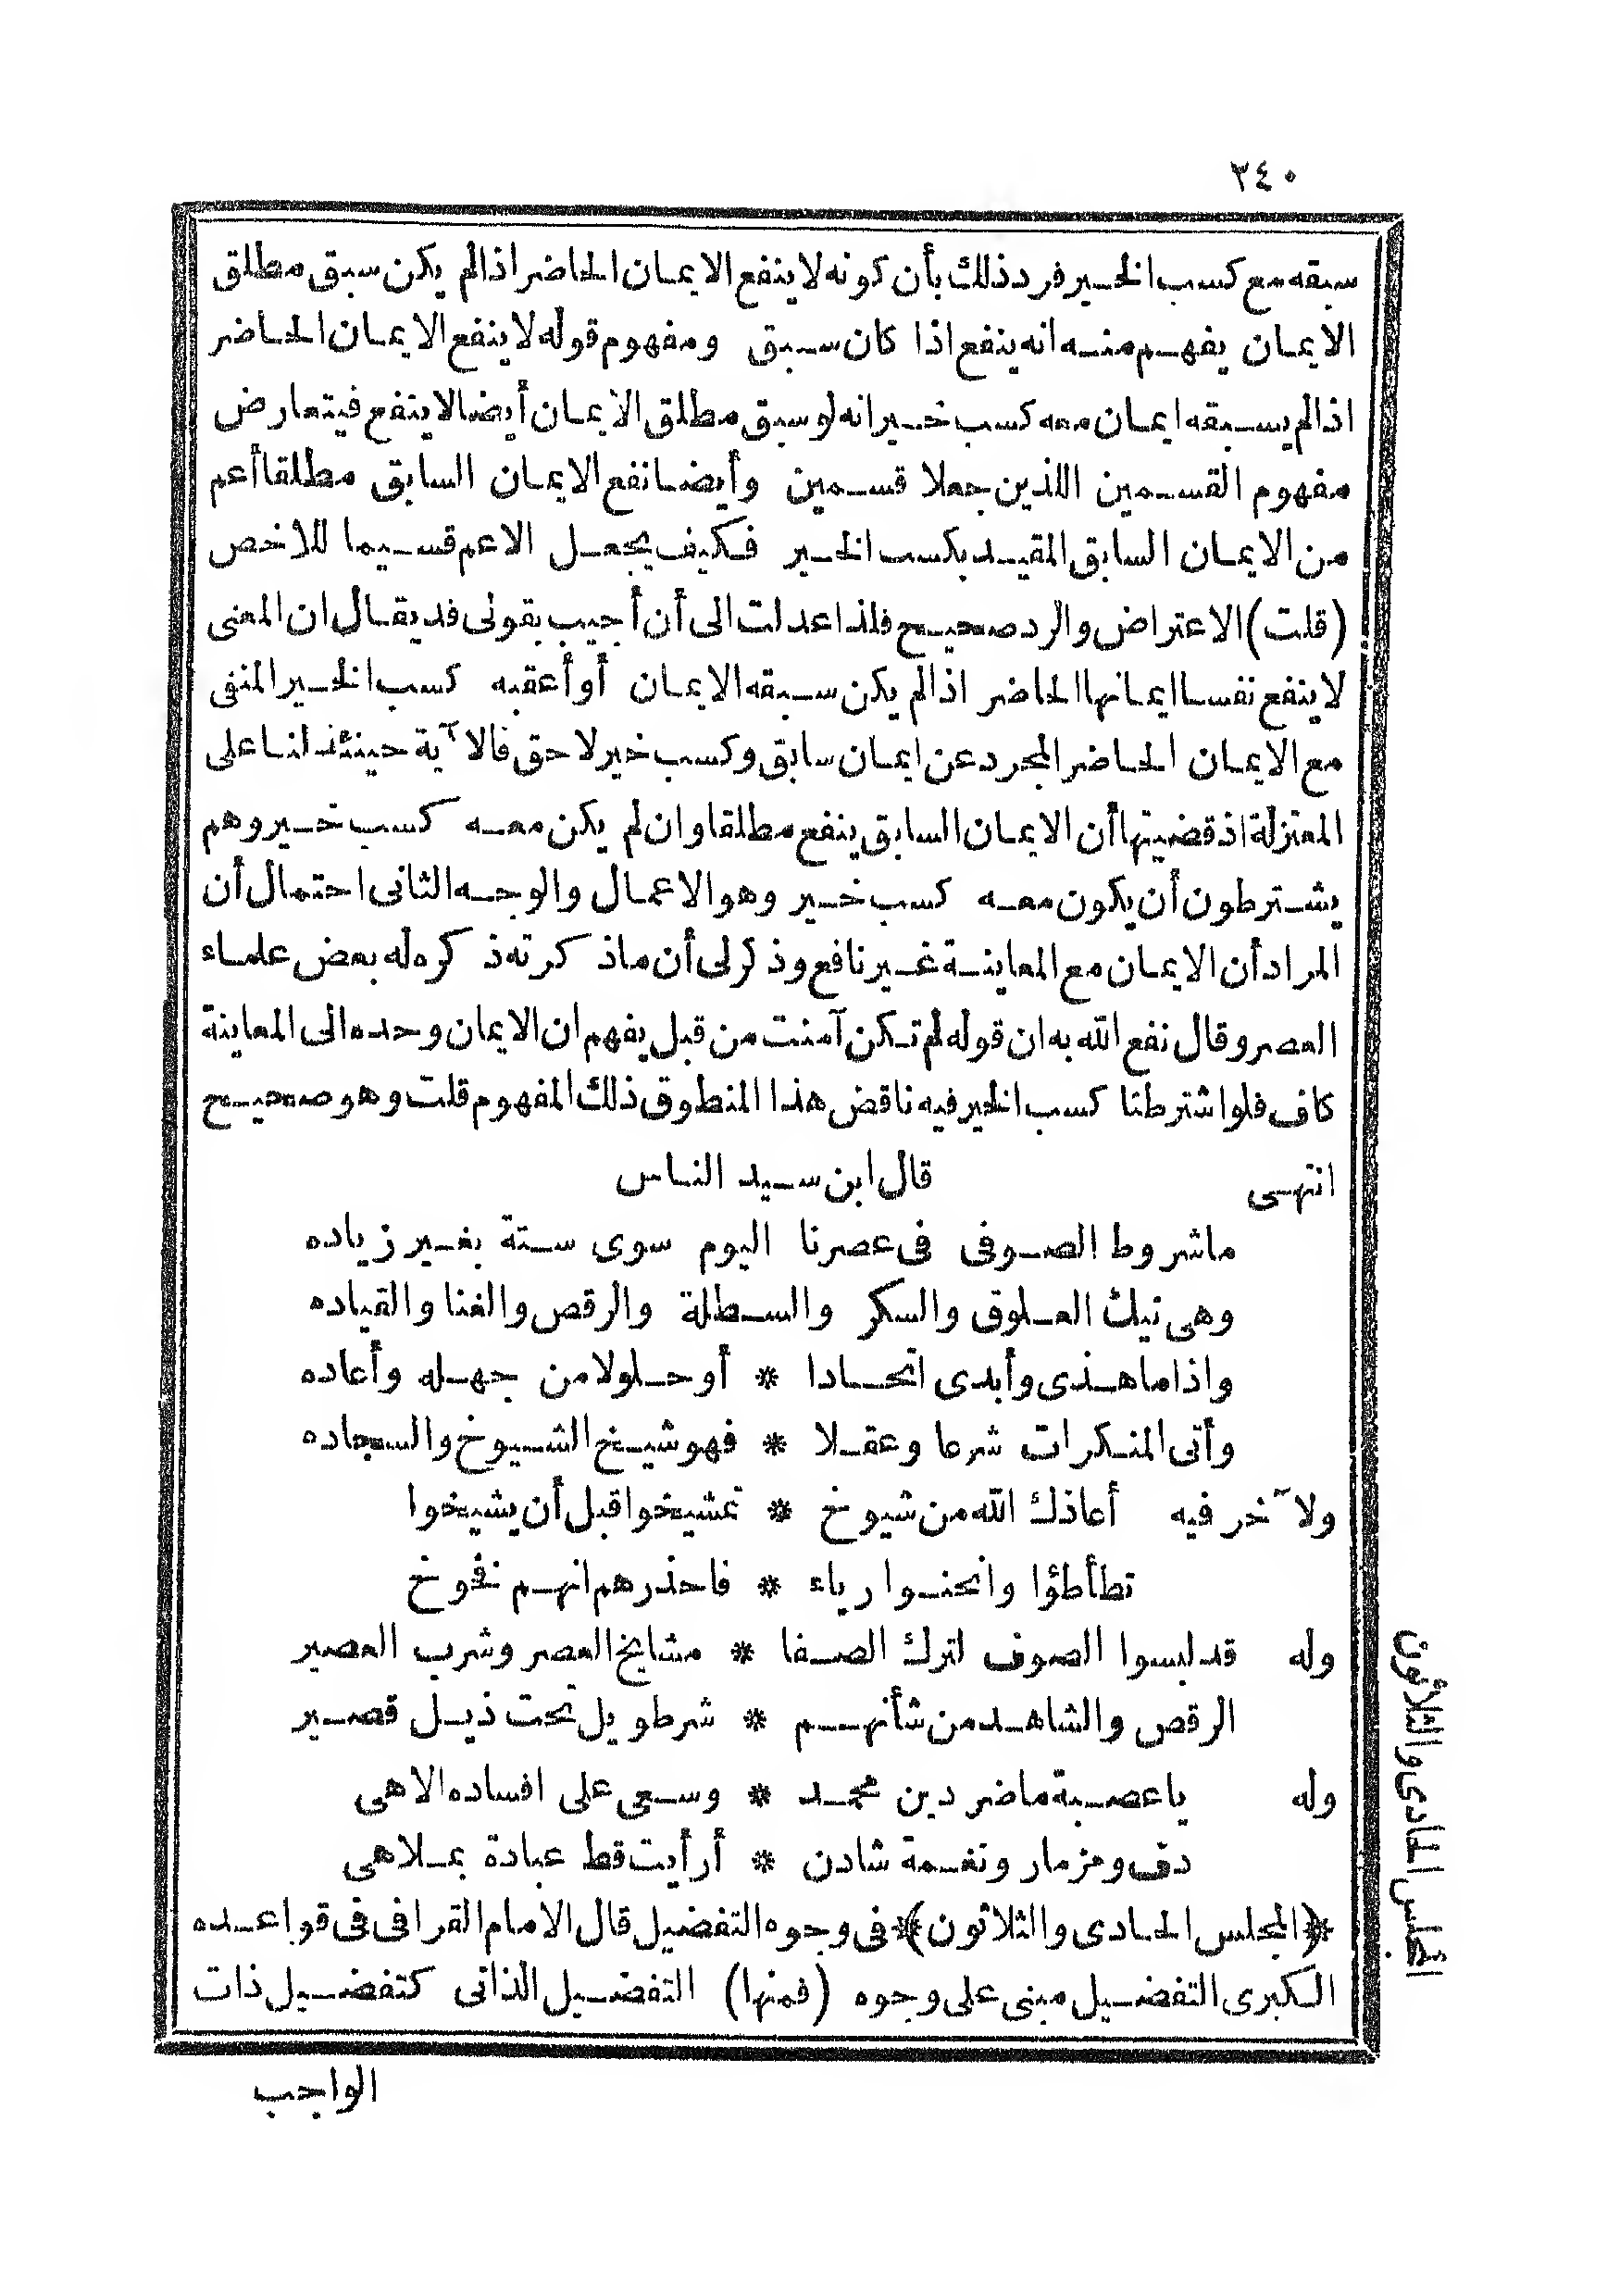 ٢٤٠
سبقه مع كسب الخير فرد ذلك بأن كونه لا ينفع الايمان الحاضر اذا لم يكن سبق مطلق
الايمان يفهم منه انه ينفع اذا كان سبق ومفهوم قوله لا ينفع الايمان الحاضر
اذا لم يسبقه ايمان معه كسب خير انه لو سبق مطلق الايمان أيضا لا ينفع فيتعارض
مفهوم القسمين اللذين جعلا قسمين وأيضا نفع الايمان السابق مطلقا أعم
من الايمان السابق المقيد بكسب الخير فكيف يجعل الاعم قسيما للاخص
(قلت) الاعتراض والرد صحيح فلذا عدلت الى أن أجيب بقولى قد يقال ان المعنى
لا ينفع نفسا ايمانها الحاضر اذا لم يكن سبقه الايمان أو أعقبه كسب الخير المنفى
مع الايمان الحاضر المجرد عن ايمان سابق وكسب خير لاحق فالآية حينئذ لنا على
المعتزلة اذ قضيتها أن الايمان السابق ينفع مطلقا وان لم يكن معه كسب خير وهم
يشترطون أن يكون معه كسب خير وهو الاعمال والوجه الثانى احتمال أن
المراد أن الايمان مع المعاينة غير نافع وذكر لى أن ما ذكرته ذكره له بعض علماء
العصر وقال نفع الله به ان قوله لم تكن آمنت من قبل يفهم ان الايمان وحده الى المعاينة
كاف فلو اشترطنا كسب الخير فيه ناقض هذا المنطوق ذلك المفهوم قلت وهو صحيح
انتهى قال ابن سيد الناس
ما شروط الصوفى فى عصرنا اليوم سوى ستة بغير زياده
وهى نيك العلوق والسكر والسطلة والرقص والغنا والقياده
واذا ما هذى وأبدى اتحادا * أو حلولا من جهله وأعاده
وأتى المنكرات شرعا وعقلا * فهو شيخ الشيوخ والسجاده
ولآخر فيه أعاذك الله من شيوخ * تمشيخوا قبل أن يشيخوا
تطأطؤا وانحنوا رياء * فاحذرهم انهم نفوخ
وله قد لبسوا الصوف لترك الصفا * مشايخ العصر وشرب العصير
الرقص والشاهد من شأنهم * شر طويل تحت ذيل قصير
وله يا عصبة ما ضر دين محمد * وسعى على افساده الا هى
دف ومزمار ونغمة شادن * أرأيت قط عبادة بملاهى
*(المجلس الحادى والثلاثون)* فى وجوه التفضيل قال الامام القرافى فى قواعده
الكبرى التفضيل مبنى على وجوه (فمنها) التفضيل الذاتى كتفضيل ذات
المجلس الحادى والثلاثون
الواجب